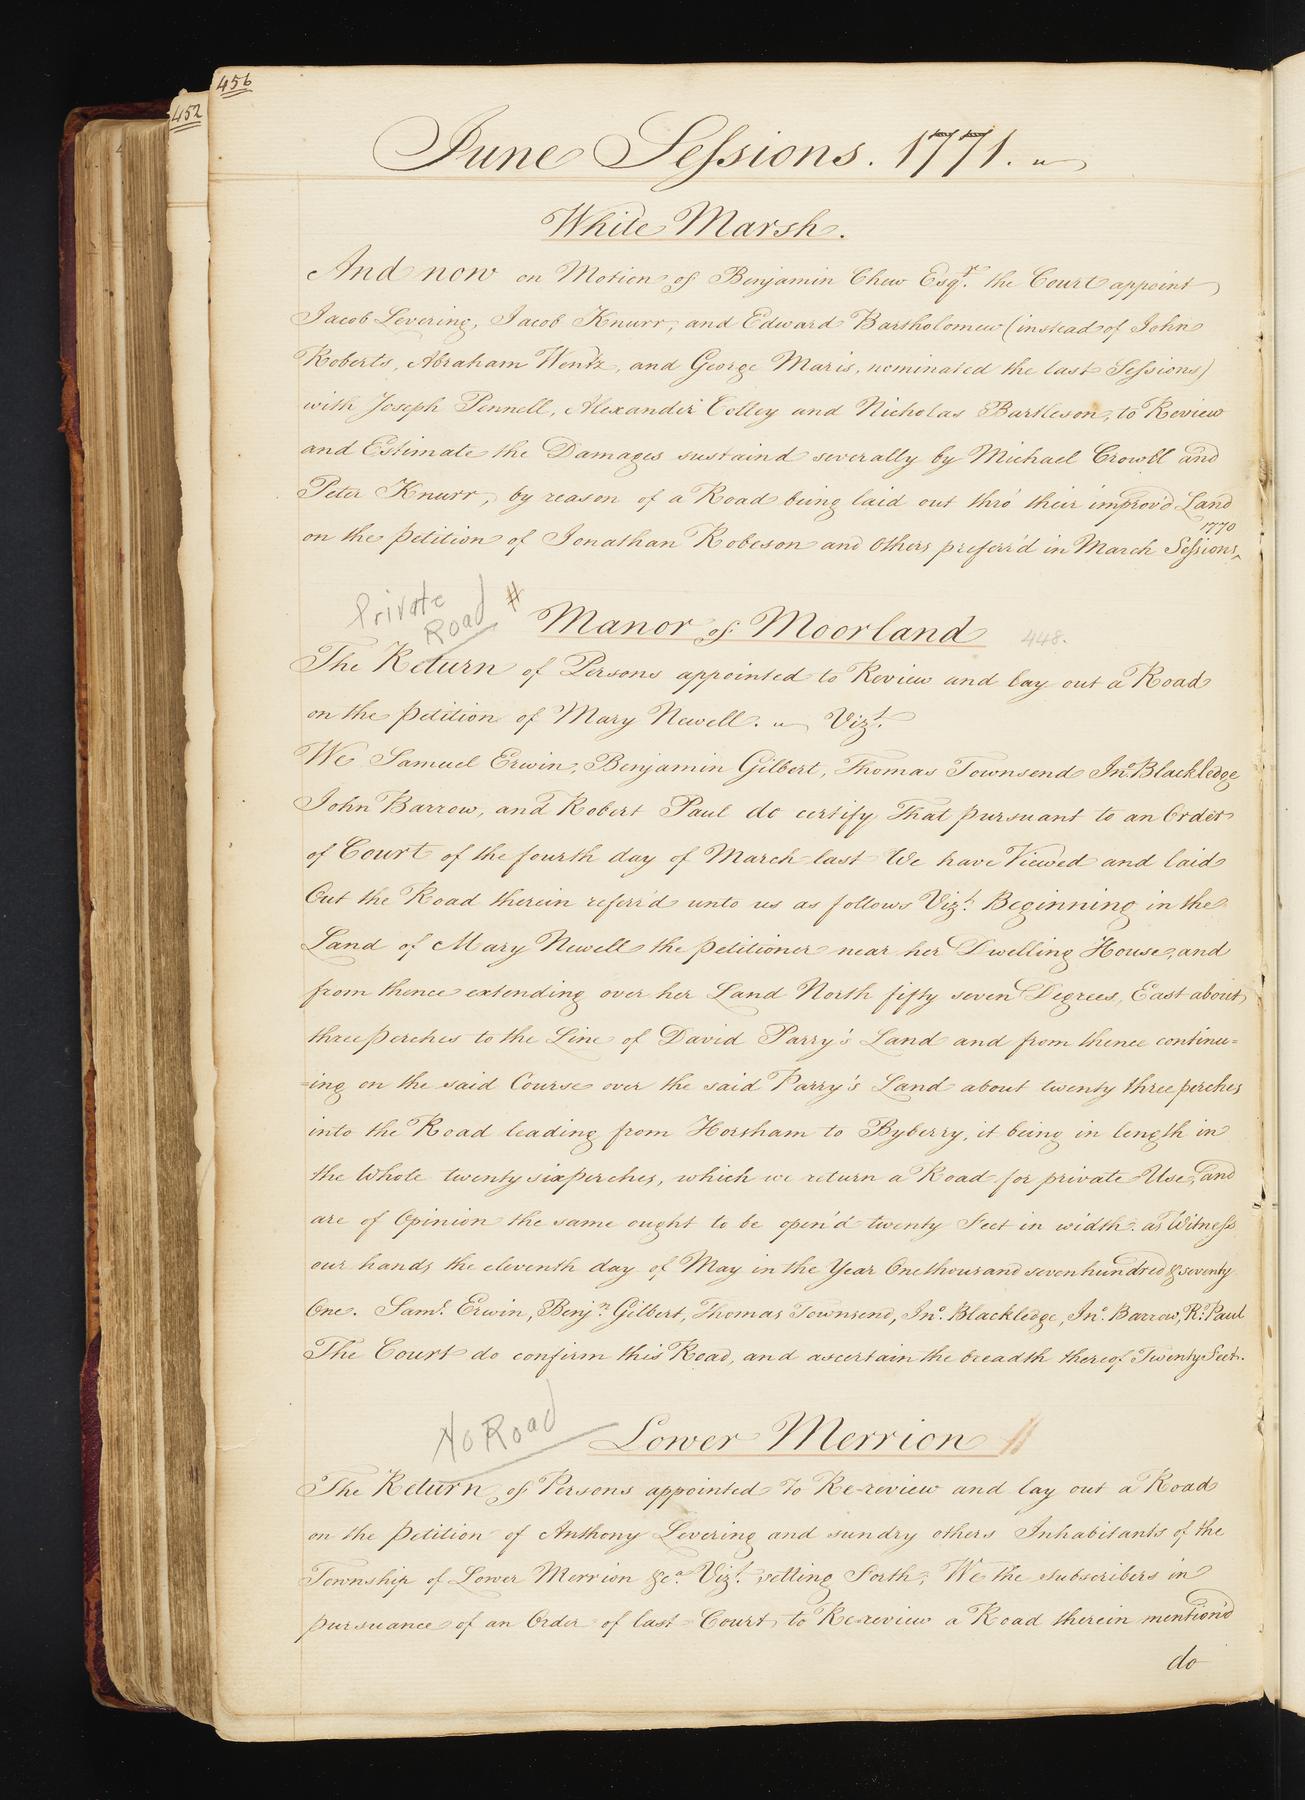 456
452
June Sessions. 1771.
White Marsh.
And now on Motion of Benjamin Chew Esqr. the Court appoint
Jacob Levering, Jacob Knurr, and Edward Bartholomew (instead of John
Roberts, Abraham Wentz, and George Maris, nominated the last Sessions)
with Joseph Pennell, Alexander Colley and Nicholas Bartleson, to Review
and Estimate the Damages sustaind severally by Michael Crowll and
Peter Knurr, by reason of a Road being laid out thro' their improv'd Land
1770
on the Petition of Jonathan Robeson and Others preferr'd in March Sessions,^
Private
Road #
Manor of Moorland 448.
The Return of Persons appointed to Review and lay out a Road
on the Petition of Mary Newell. Vizt.
We Samuel Erwin, Benjamin Gilbert, Thomas Townsend Jno. Blackledge
John Barrow, and Robert Paul do certify That pursuant to an Order
of Court of the fourth day of March last We have Viewed and laid
Out the Road therein referr'd unto us as follows Vizt. Beginning in the
Land of Mary Newell the Petitioner near her Dwelling House, and
from thence extending over her Land North fifty seven Degrees, East about
three perches to the Line of David Parry's Land and from thence continu=
=ing on the said Course over the said Parry's Land about twenty three perches
into the Road leading from Horsham to Byberry, it being in length in
the Whole twenty six perches, which we return a Road for private Use, and
are of Opinion the same ought to be open'd twenty Feet in width. as Witness
our hands the eleventh day of May in the Year One thousand seven hundred & seventy
One. Saml. Erwin, Benjn. Gilbert, Thomas Townsend, Jno. Blackledge, Jno. Barrow, Rt. Paul
The Court do confirm this Road, and ascertain the breadth thereof Twenty Feet.
No Road
Lower Merrion
The Return of Persons appointed to Re-review and lay out a Road
on the Petition of Anthony Levering and sundry others Inhabitants of the
Township of Lower Merrion &ca. Vizt. setting Forth, We the subscribers in
pursuance of an Order of last Court, to Re-review a Road therein mention'd
do